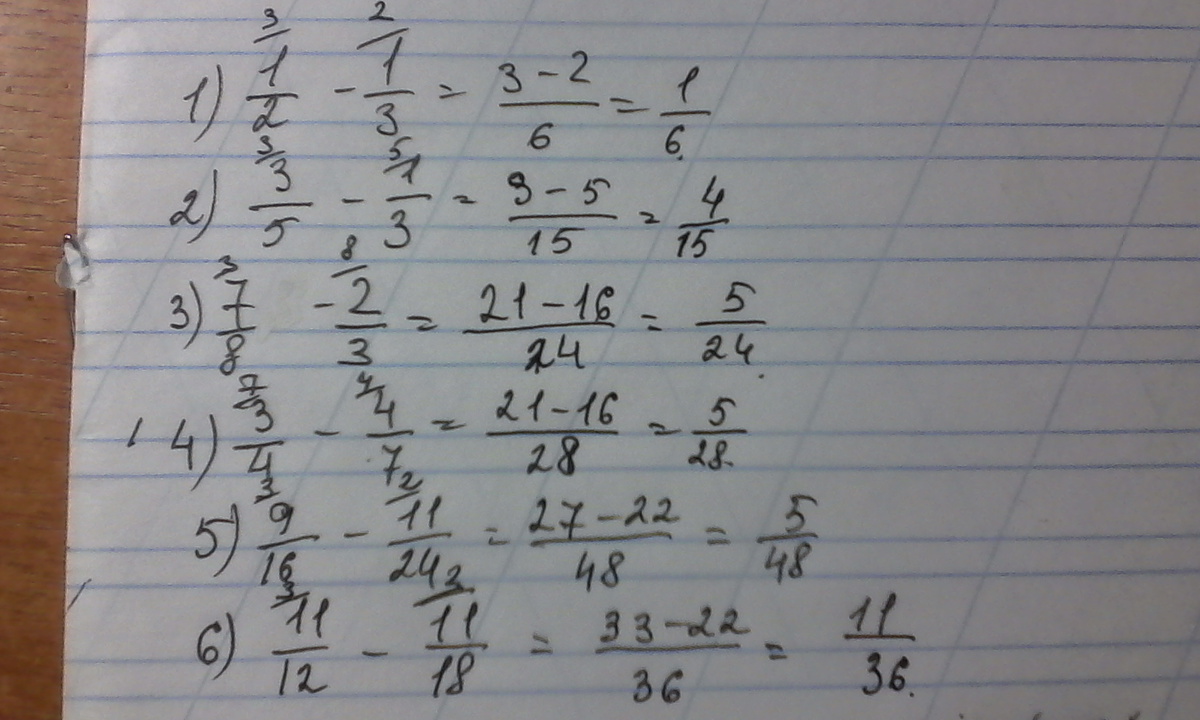 1) ³⁄ 1/2 - ²⁄ 1/3 = (3-2)/6 = 1/6.
2) ³⁄ 3/5 - ⁵⁄ 1/3 = (9-5)/15 = 4/15
3) ³⁄ 7/8 - ⁸⁄ 2/3 = (21-16)/24 = 5/24.
4) ⁷⁄ 3/4 - ⁴⁄ 4/7 = (21-16)/28 = 5/28.
5) ³⁄ 9/16 - ²⁄ 11/24 = (27-22)/48 = 5/48
6) ³⁄ 11/12 - ²⁄ 11/18 = (33-22)/36 = 11/36.